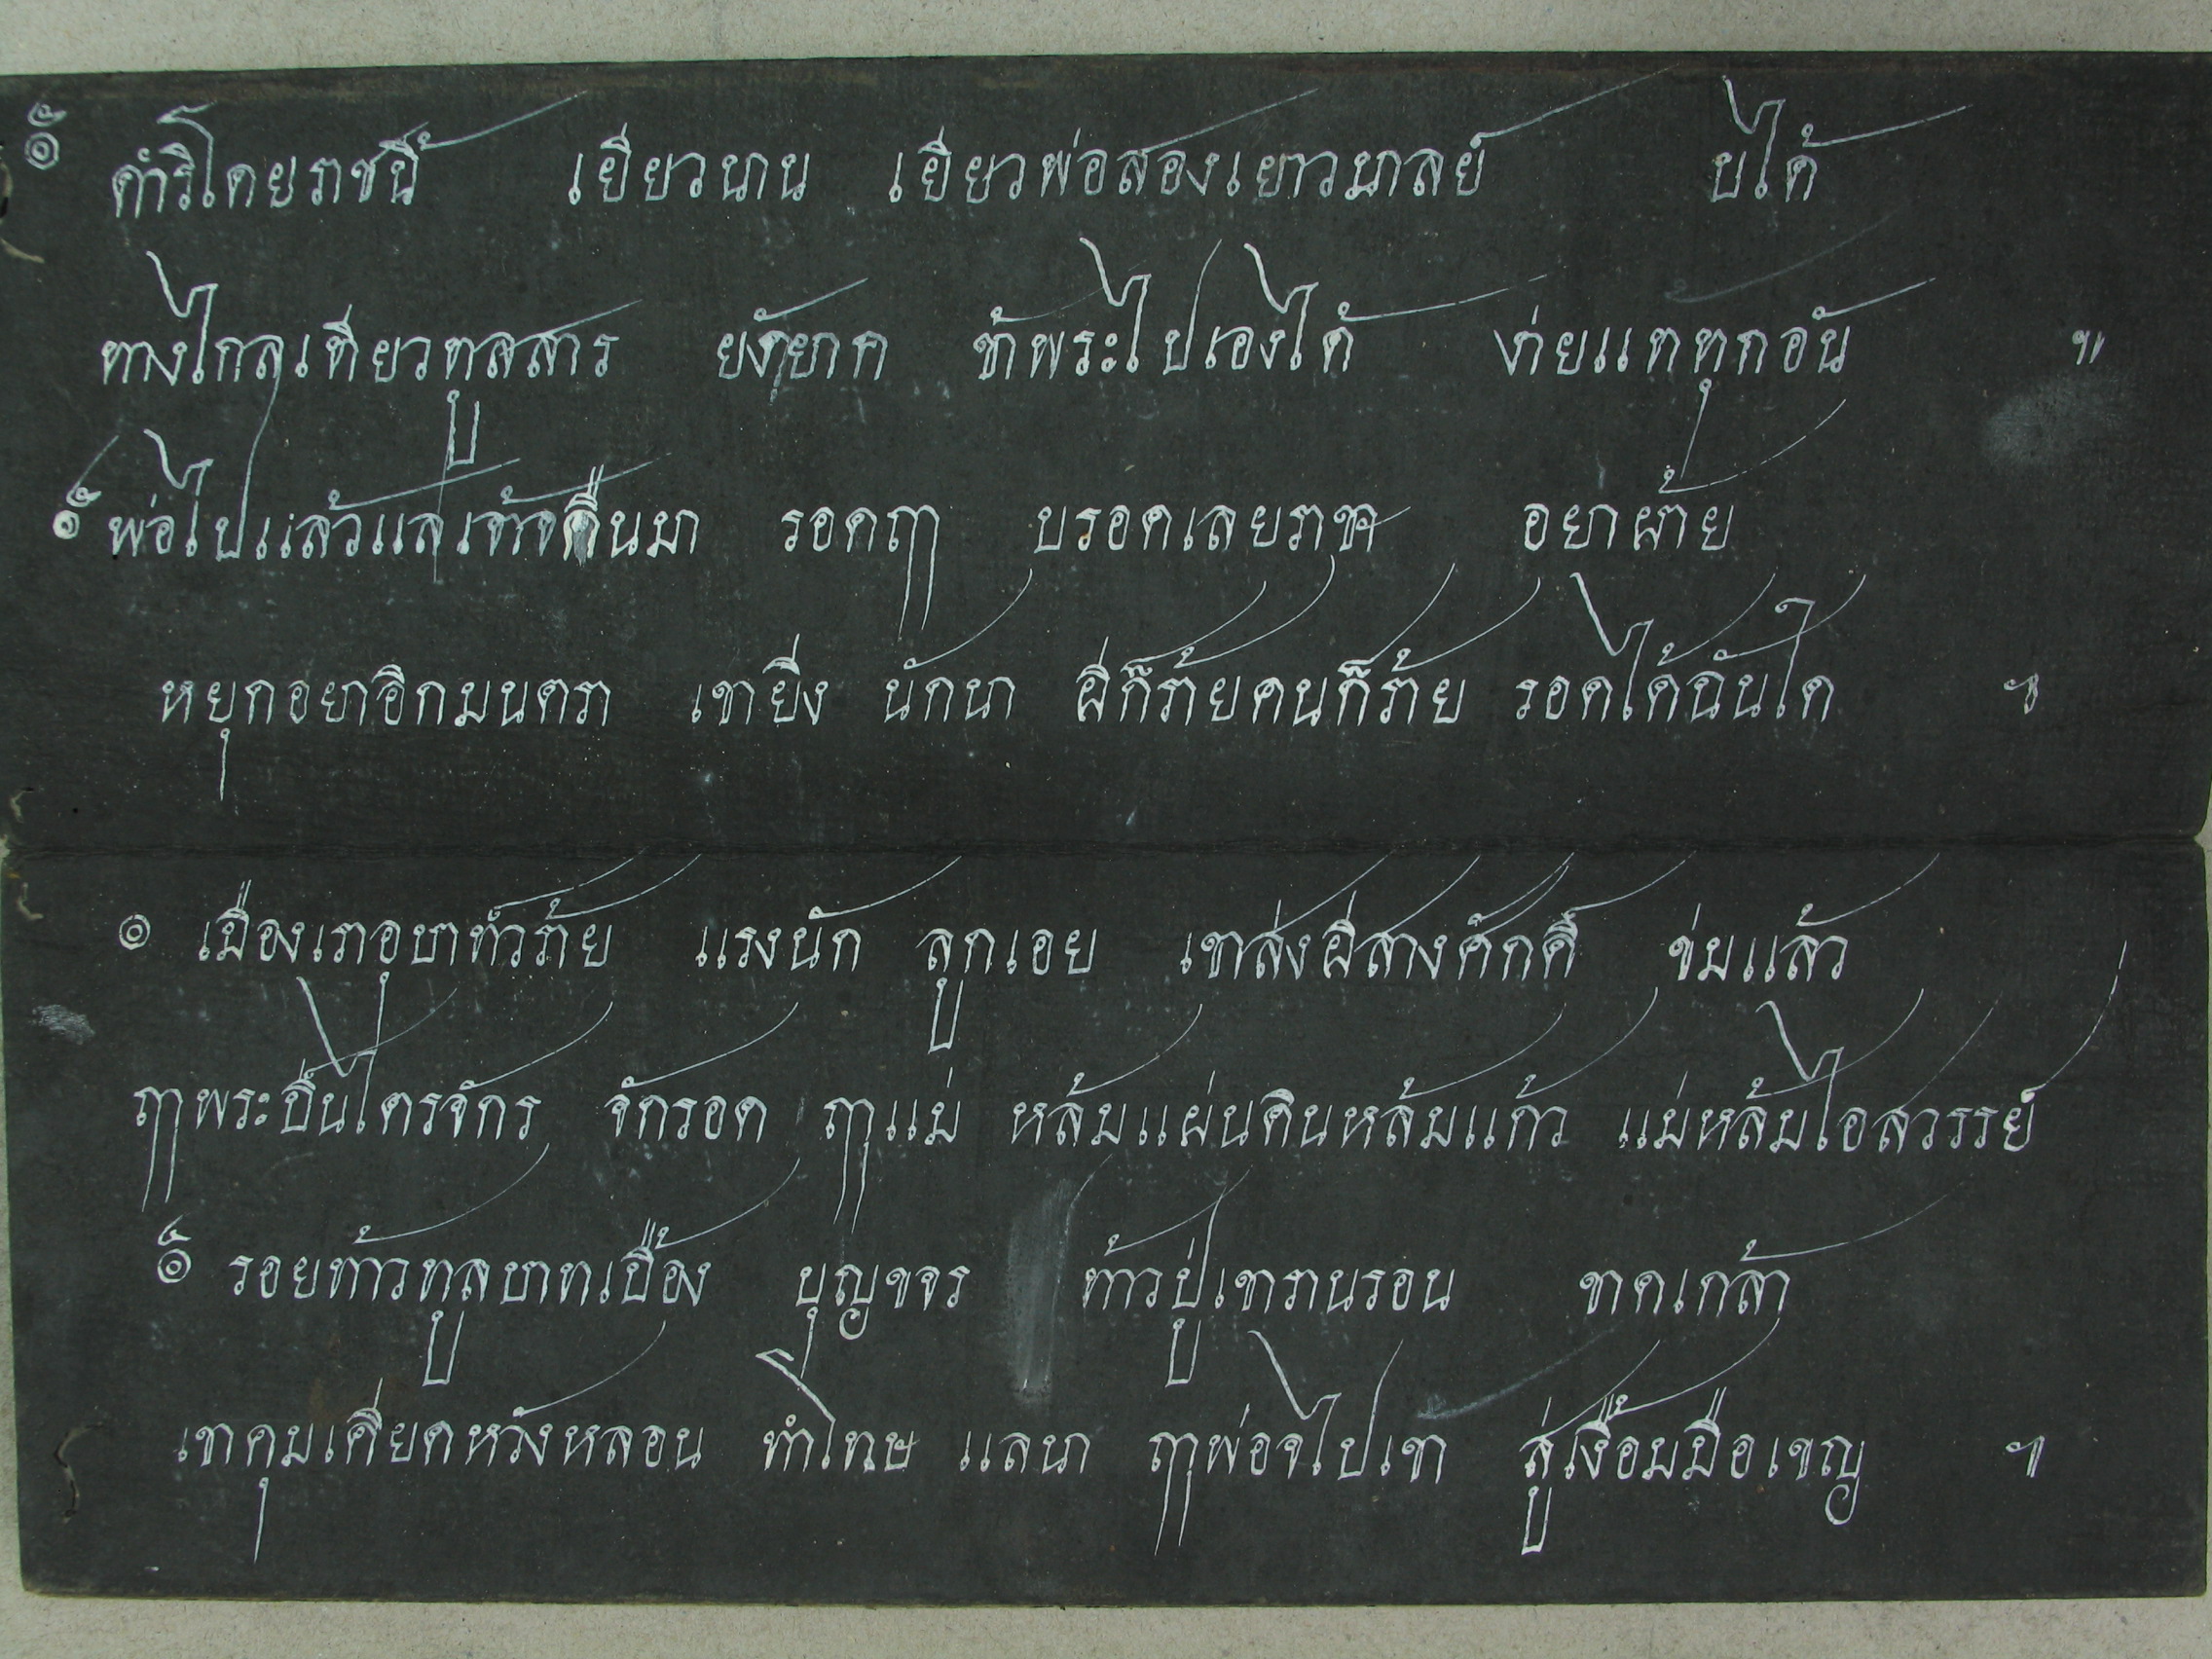 ๏ ดำริโดยราชนี้ เยียวนาน เยียวพ่อสองเยาวมาลย์ บได้
ทางไกลเทียวทูลสาร ยังยาก ข้าพระไปเองได้ ง่ายแททุกอัน ฯ
๏ พ่อไปแล้วแลเจ้าจคืนมา รอดฤๅ บรอดเลยราชา อยาผ้าย
หยุดอยาอิกมนตรา เขายิ่ง นักนา ผีก็ร้ายคนก็ร้าย รอดได้ฉันใด ฯ
๏ เมืองเราอุบาทว์ร้าย แรงนัก ลูกเอย เขาส่งผีสางศักดิ์ ข่มแล้ว
ฤๅพระปิ่นไตรจักร จักรอด ฤๅแม่ หล้มแผ่นดินหล้มแก้ว แม่หล้มไอสวรรย์
๏ รอยท้าวทูลบาทเบื้อง บุญขจร ท้าวปู่เขารานรอน ขาดเกล้า
เขาคุมเคียดหวังหลอน ทำโทษ แลนา ฤๅพ่อจไปเขา สู่เงื้อมมือเขญ ฯ